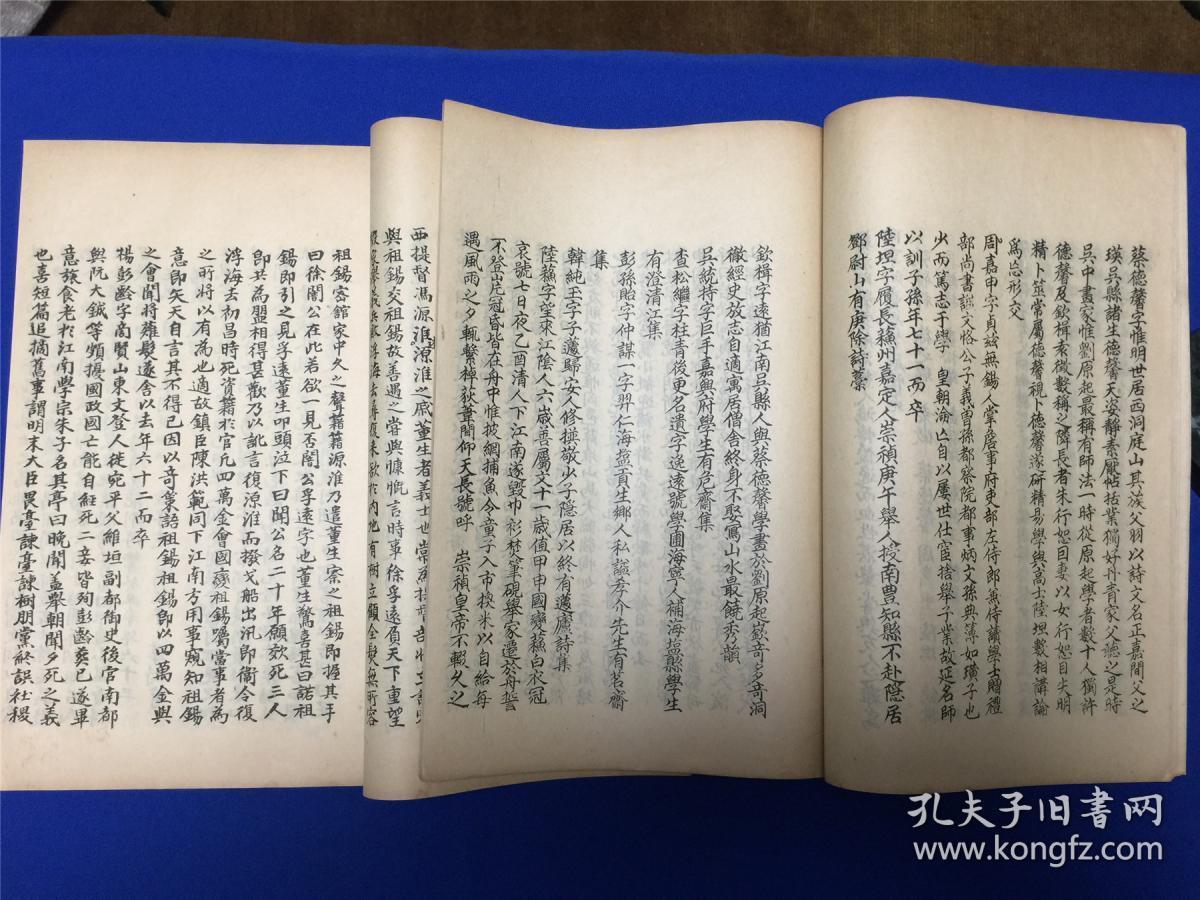 蔡德馨字惟明世居西洞庭山其族父羽以詩文名正嘉間父之
瑛吳縣諸生德馨天姿靜素厭帖括業獨好丹青家父聽之是時
吳中畫家惟劉原起最稱有師法一時從原起學者數十人獨許
德馨及欽楫袁徵數稱之隣長者朱行恕目妻以女行恕目失明
精卜筮常屬德馨視卜德馨遂研精易學與高士陸坦數相講論
為忘形交
周嘉申字貞玆無錫人掌詹事府吏部左侍郎兼侍讀學士贈禮
部尚書諡文恪公子義曾孫都察院都事炳文孫典簿如璜子也
少而篤志于學 皇朝淪亡自以屢世仕宦捨舉子業故延名師
以訓子孫年七十一而卒
陸坦字履長蘇州嘉定人崇禎庚午舉人授南豐知縣不赴隱居
鄧尉山有庚除詩藁
欽楫字遠猶江南吳縣人與蔡德馨學畫於劉原起欽奇多奇洞
徹經史放志自適寓居僧舍終身不娶寫山水最饒秀韻
吳統持字巨手嘉興府學生有危齋集
查松繼字柱青後更名遺字逸遠號學圃海寧人補海塩縣學生
有澄清江集
彭孫貽字仲謀一字羿仁海塩貢生鄉人私諡孝介先生有茗齋
集
韓純玉字子蘧歸安人修撰敬少子隱居以終有蘧廬詩集
陸蘇字望來江陰人六歲善屬文十一歲值甲申國變蘇白衣冠
哀號七日夜乙酉清人下江南遂毀巾衫焚筆硯舉家遷於舟誓
不登岸冠昏皆在舟中惟披網捕魚令童子入市換米以自給每
遇風雨之夕輒繫棹荻葦間仰天長號呼 崇禎皇帝不輟久之
西提督馮源淮源淮之戚董生者義士也常為提督
與祖錫交祖錫故善遇之嘗與慷慨言時事徐孚遠負天下重望
祖錫密館家中久之聲藉藉源淮乃遣董生察之祖錫即握其手
曰徐闇公在此若欲一見否闇公孚遠字也董生驚喜甚曰諾祖
錫即引之見孚遠董生叩頭泣下曰聞公名二十年願效死三人
即共為盟相得甚歡乃以訛言復源淮而撥戈船出汛即衞令復
浮海去初昌時死資籍於官凡四萬金會國變祖錫囑當事者為
之所將以有為也適故鎮臣陳洪範同下江南方用事窺知祖錫
意即矢天自言其不得已因以奇策語祖錫祖錫即以四萬金與
之會聞將薙髮遂舍以去年六十二而卒
楊彭齡字商賢山東文登人徙宛平父維垣副都御史後官南都
與阮大鋮等頻擾國政國亡能自經死二妾皆殉彭齡葬已遂畢
意旅食老於江南學宗朱子名其亭曰晚聞蓋舉朝聞夕死之義
也喜短篇追摘舊事謂明末大臣畏臺諫臺諫樹朋黨終誤社稷
孔夫子旧书网
www.kongfz.com